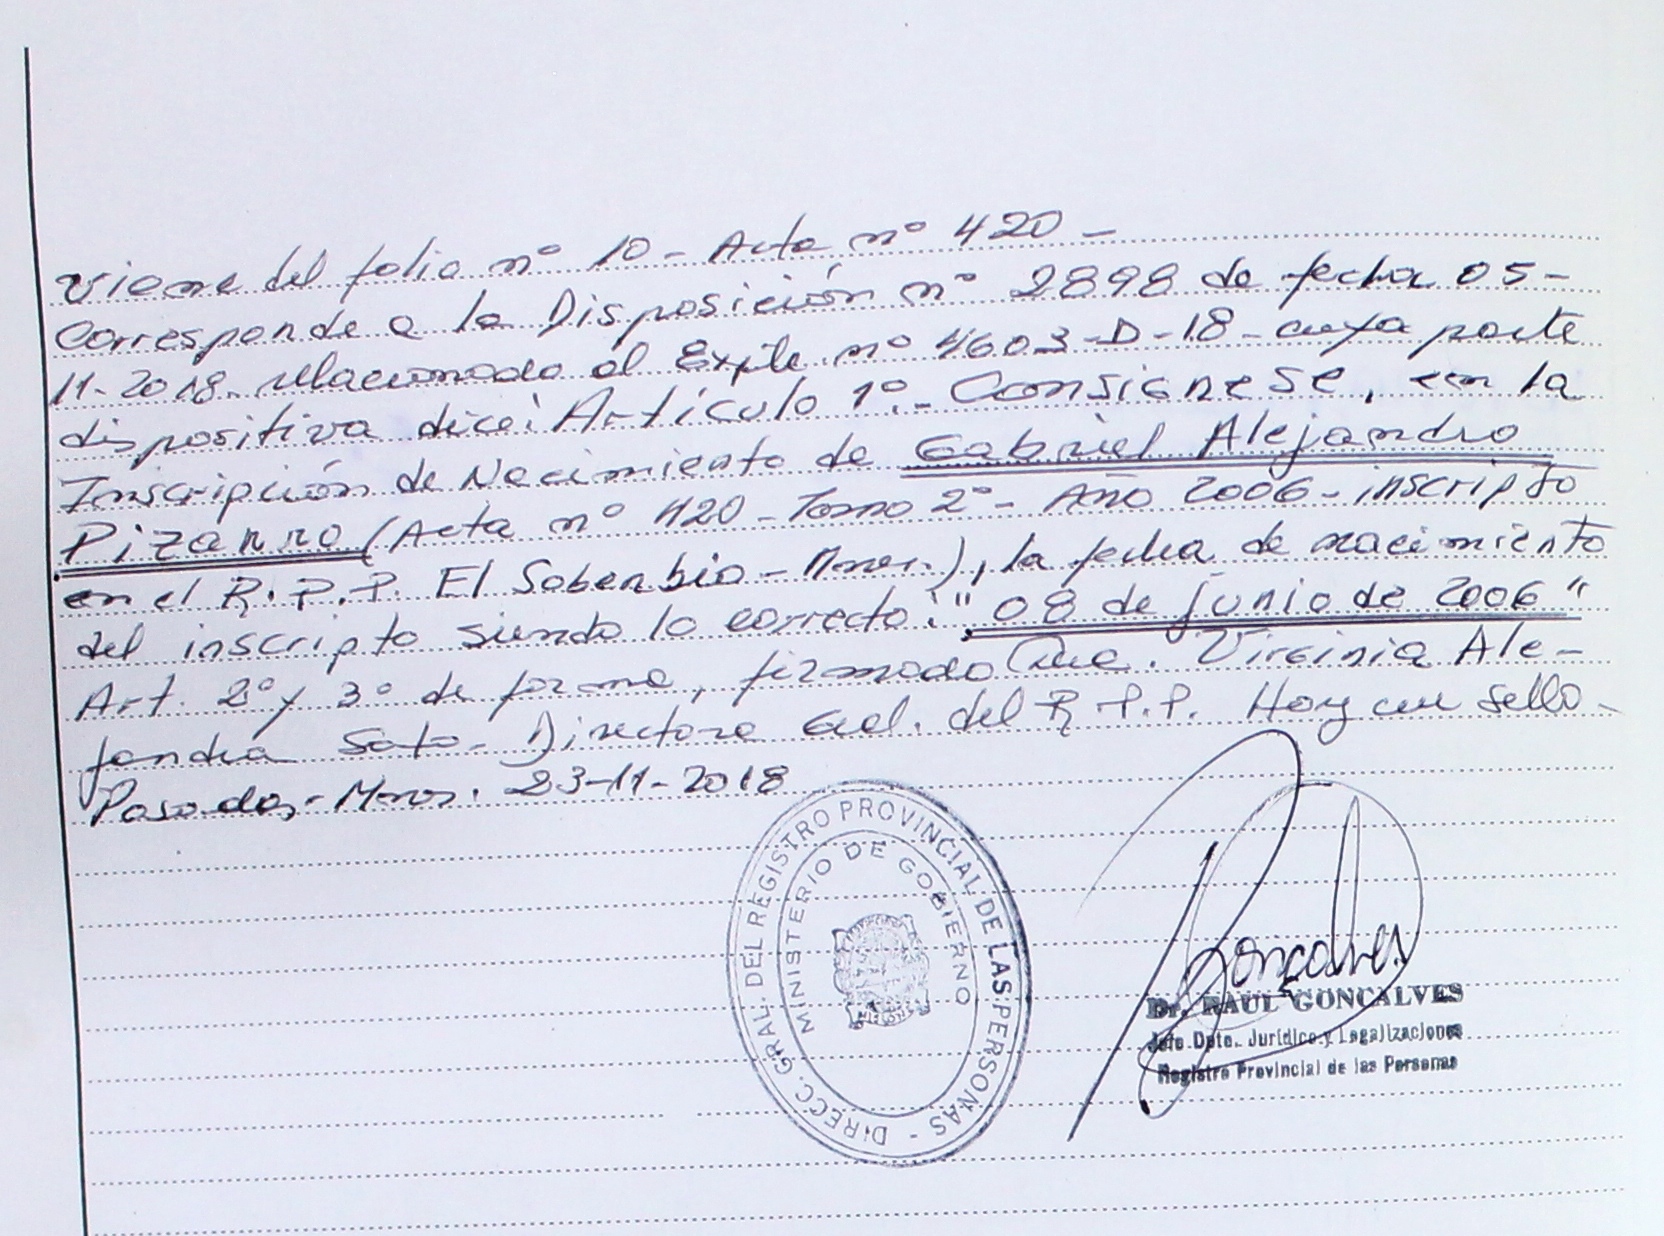 Viene del folio nº 10 - Acta nº 420 -
Corresponde a la Disposición nº 2898 de fecha 05-
11-2018. relacionado al Expte. nº 4603-D-18 - cuya parte
dispositiva dice: Artículo 1º.- Consignese, en la
Inscripción de Nacimiento de Gabriel Alejandro
Pizarro (Acta nº 420 - Tomo 2º - Año 2006 - inscripto
en el R.P.P. El Soberbio - Mnes.), la fecha de nacimiento
del inscripto siendo lo correcto: "08 de junio de 2006"
Art. 2º y 3º de forma, firmado Dra. Virginia Ale-
jandra Soto - Directora Gral. del R.P.P. Hoy cu sello -
Posadas, - Mnes. 23-11-2018
DIRECC. GRAL. DEL REGISTRO PROVINCIAL DE LAS PERSONAS -
MINISTERIO DE GOBIERNO
MISIONES
Gonçalves
Dr. RAUL GONCALVES
Jefe Dpto. Jurídico y Legalizaciones
Registro Provincial de las Personas